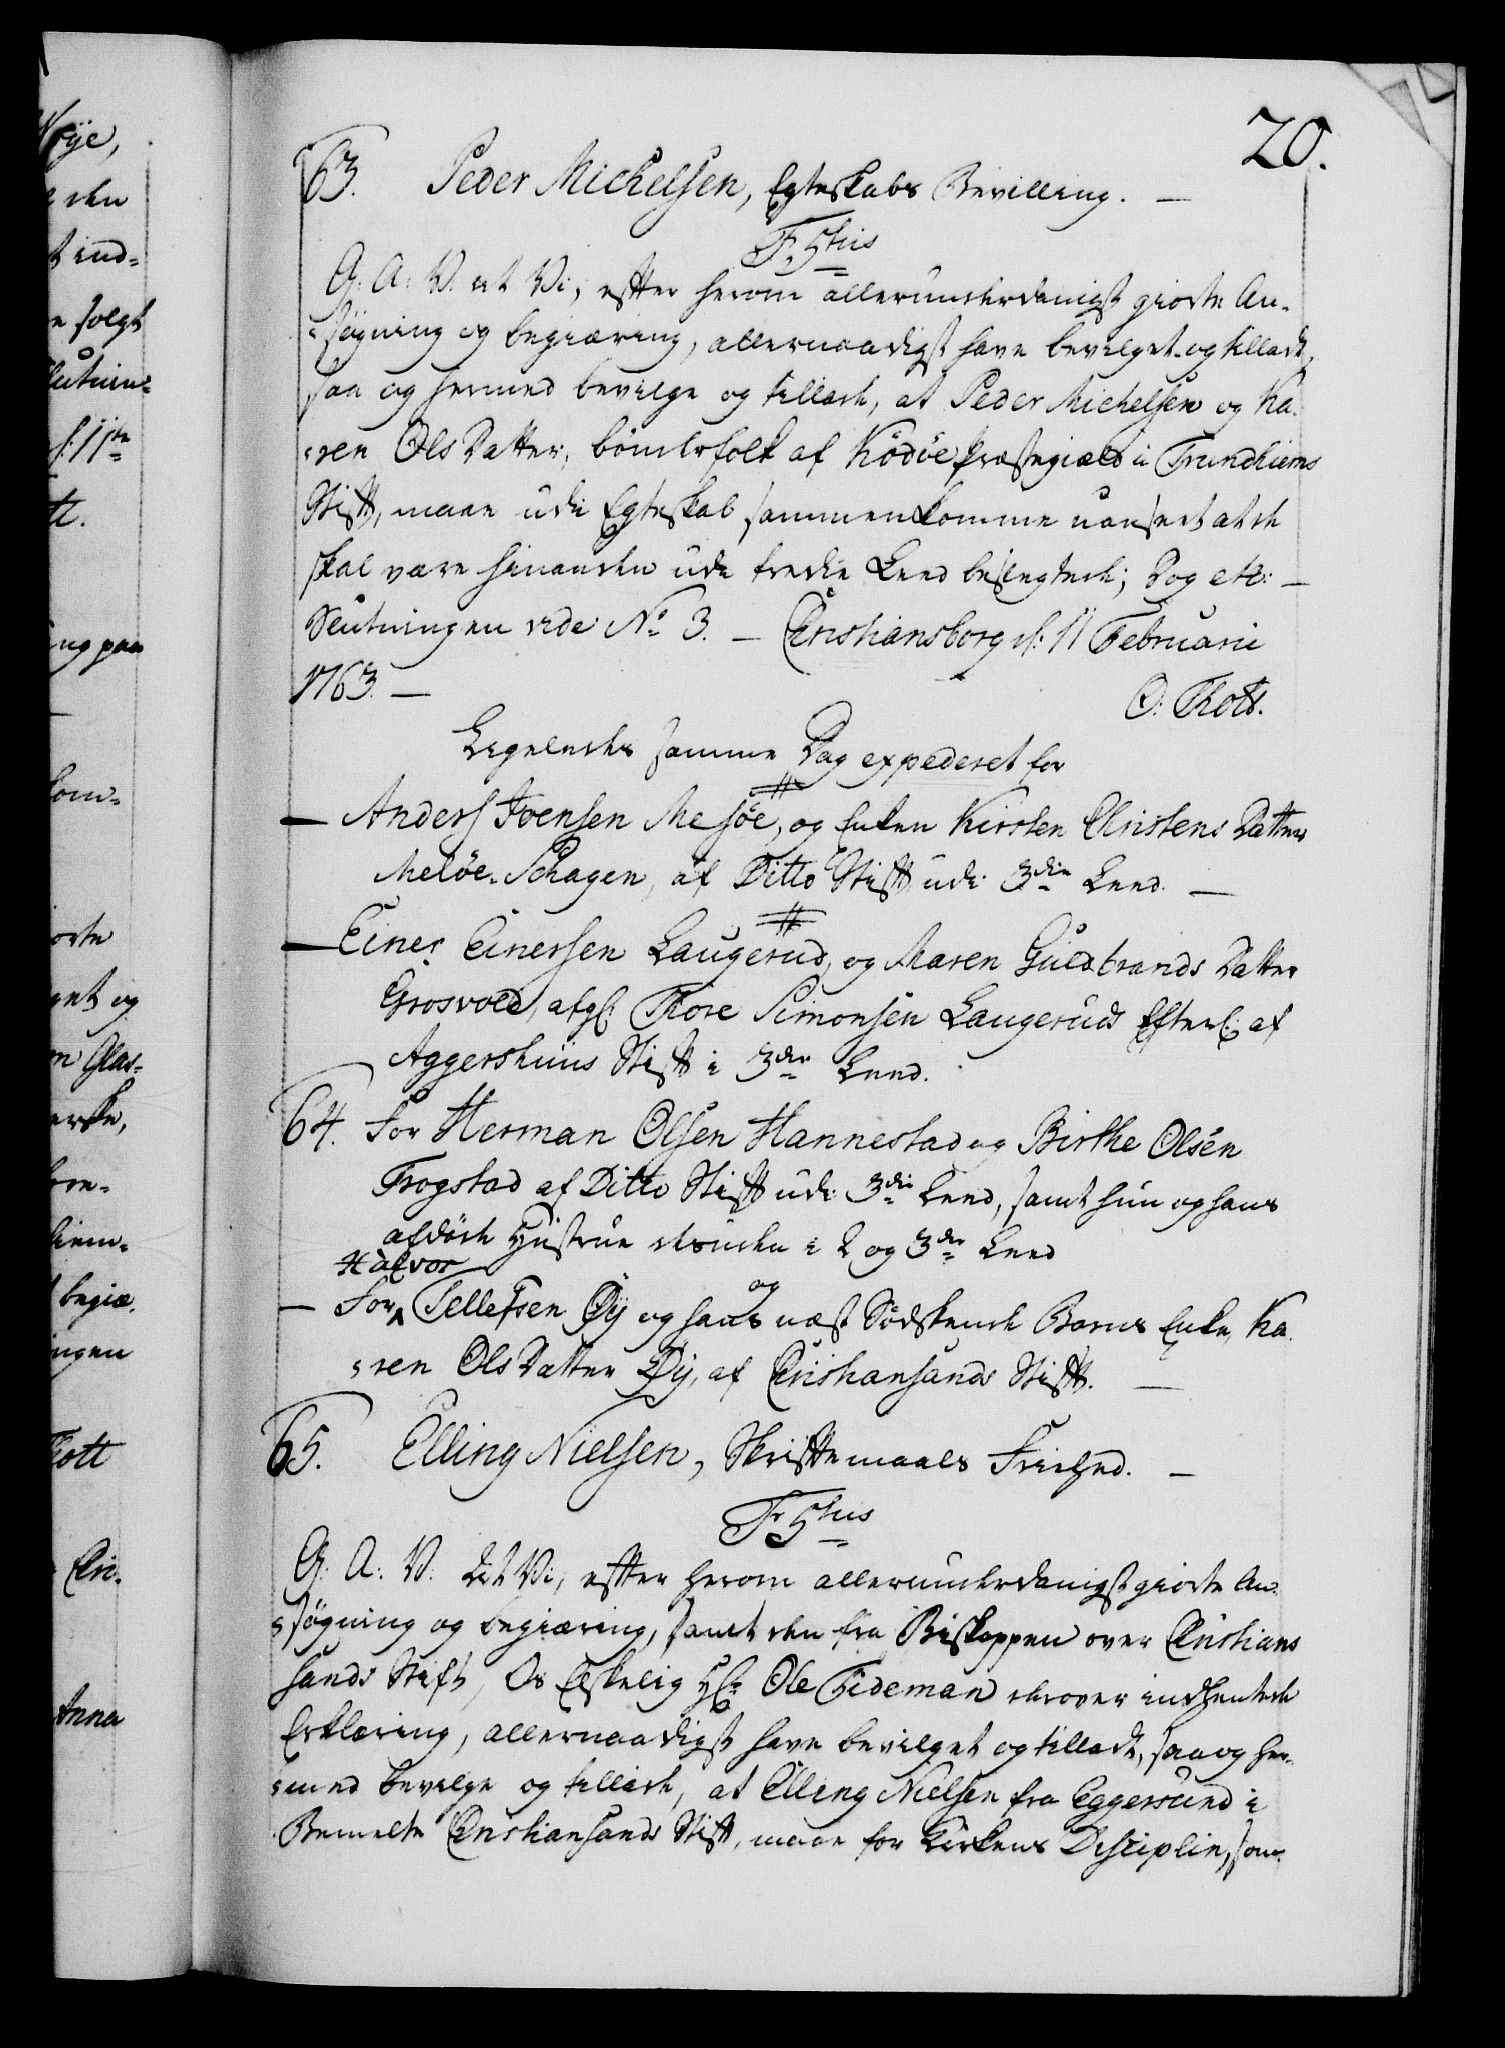 20.
63. Peder Michelsen, Egteskabs Bevilling. —
Fr. 5tus
G: A: V. at Vi, efter herom allerunderdanigst giorte An-
søgning og begiæring, allernaadigst have bevilget og tilladt,
saa og hermed bevilge og tillade, at Peder Michelsen og Ka-
ren Ols Datter, bönderfolk af Rödöe Præstegield i Trundhiems
Stift, maae udi Egteskab sammenkomme uanseet at de
skal være hinanden udi tredie Leed beslegtede; Dog etc: —
Slutningen vide No 3. — Christiansborg d: 11 Februarii
1763. —
O: Thott.
Ligeledes samme Dag expederet for
— Anders Ivensen Mesöe, og Enken Kirsten Christens Datter
Melöe-Schagen, af Ditto Stift udi 3die Leed. —
— Einer Einersen Laugerud, og Maren Guldbrands Datter
Grosvold, afg: Thore Simonsen Laugeruds Efterl: af
Aggershuus Stift i 3die Leed.
64. For Herman Olsen Hannestad og Birthe Olsen
Trogstad af Ditto Stift udi 3die Leed, samt hun og hans
afdöde Hustrue desuden i 2 og 3die Leed
Halvor
— For Tellefsen Öÿ og hans næst Södskende Barns Enke, Ka-
og
ren Ols Datter Öÿ, af Christiansands Stift. —
65. Elling Nielsen, Skriftemaals Friehed. —
Fr 5tus
G: A: V: At Vi, efter herom allerunderdanigst giorte An-
søgning og begiæring, samt den fra Biskoppen over Christian-
sands Stift, Os Elskelig Hr Ole Tideman derover indhentede
Erklæring, allernaadigst have bevilget og tilladt, saa og her-
med bevilge og tillade, at Elling Nielsen fra Eggersund i
Bemelte Christiansands Stift, maae for Kirkens Disciplin, som